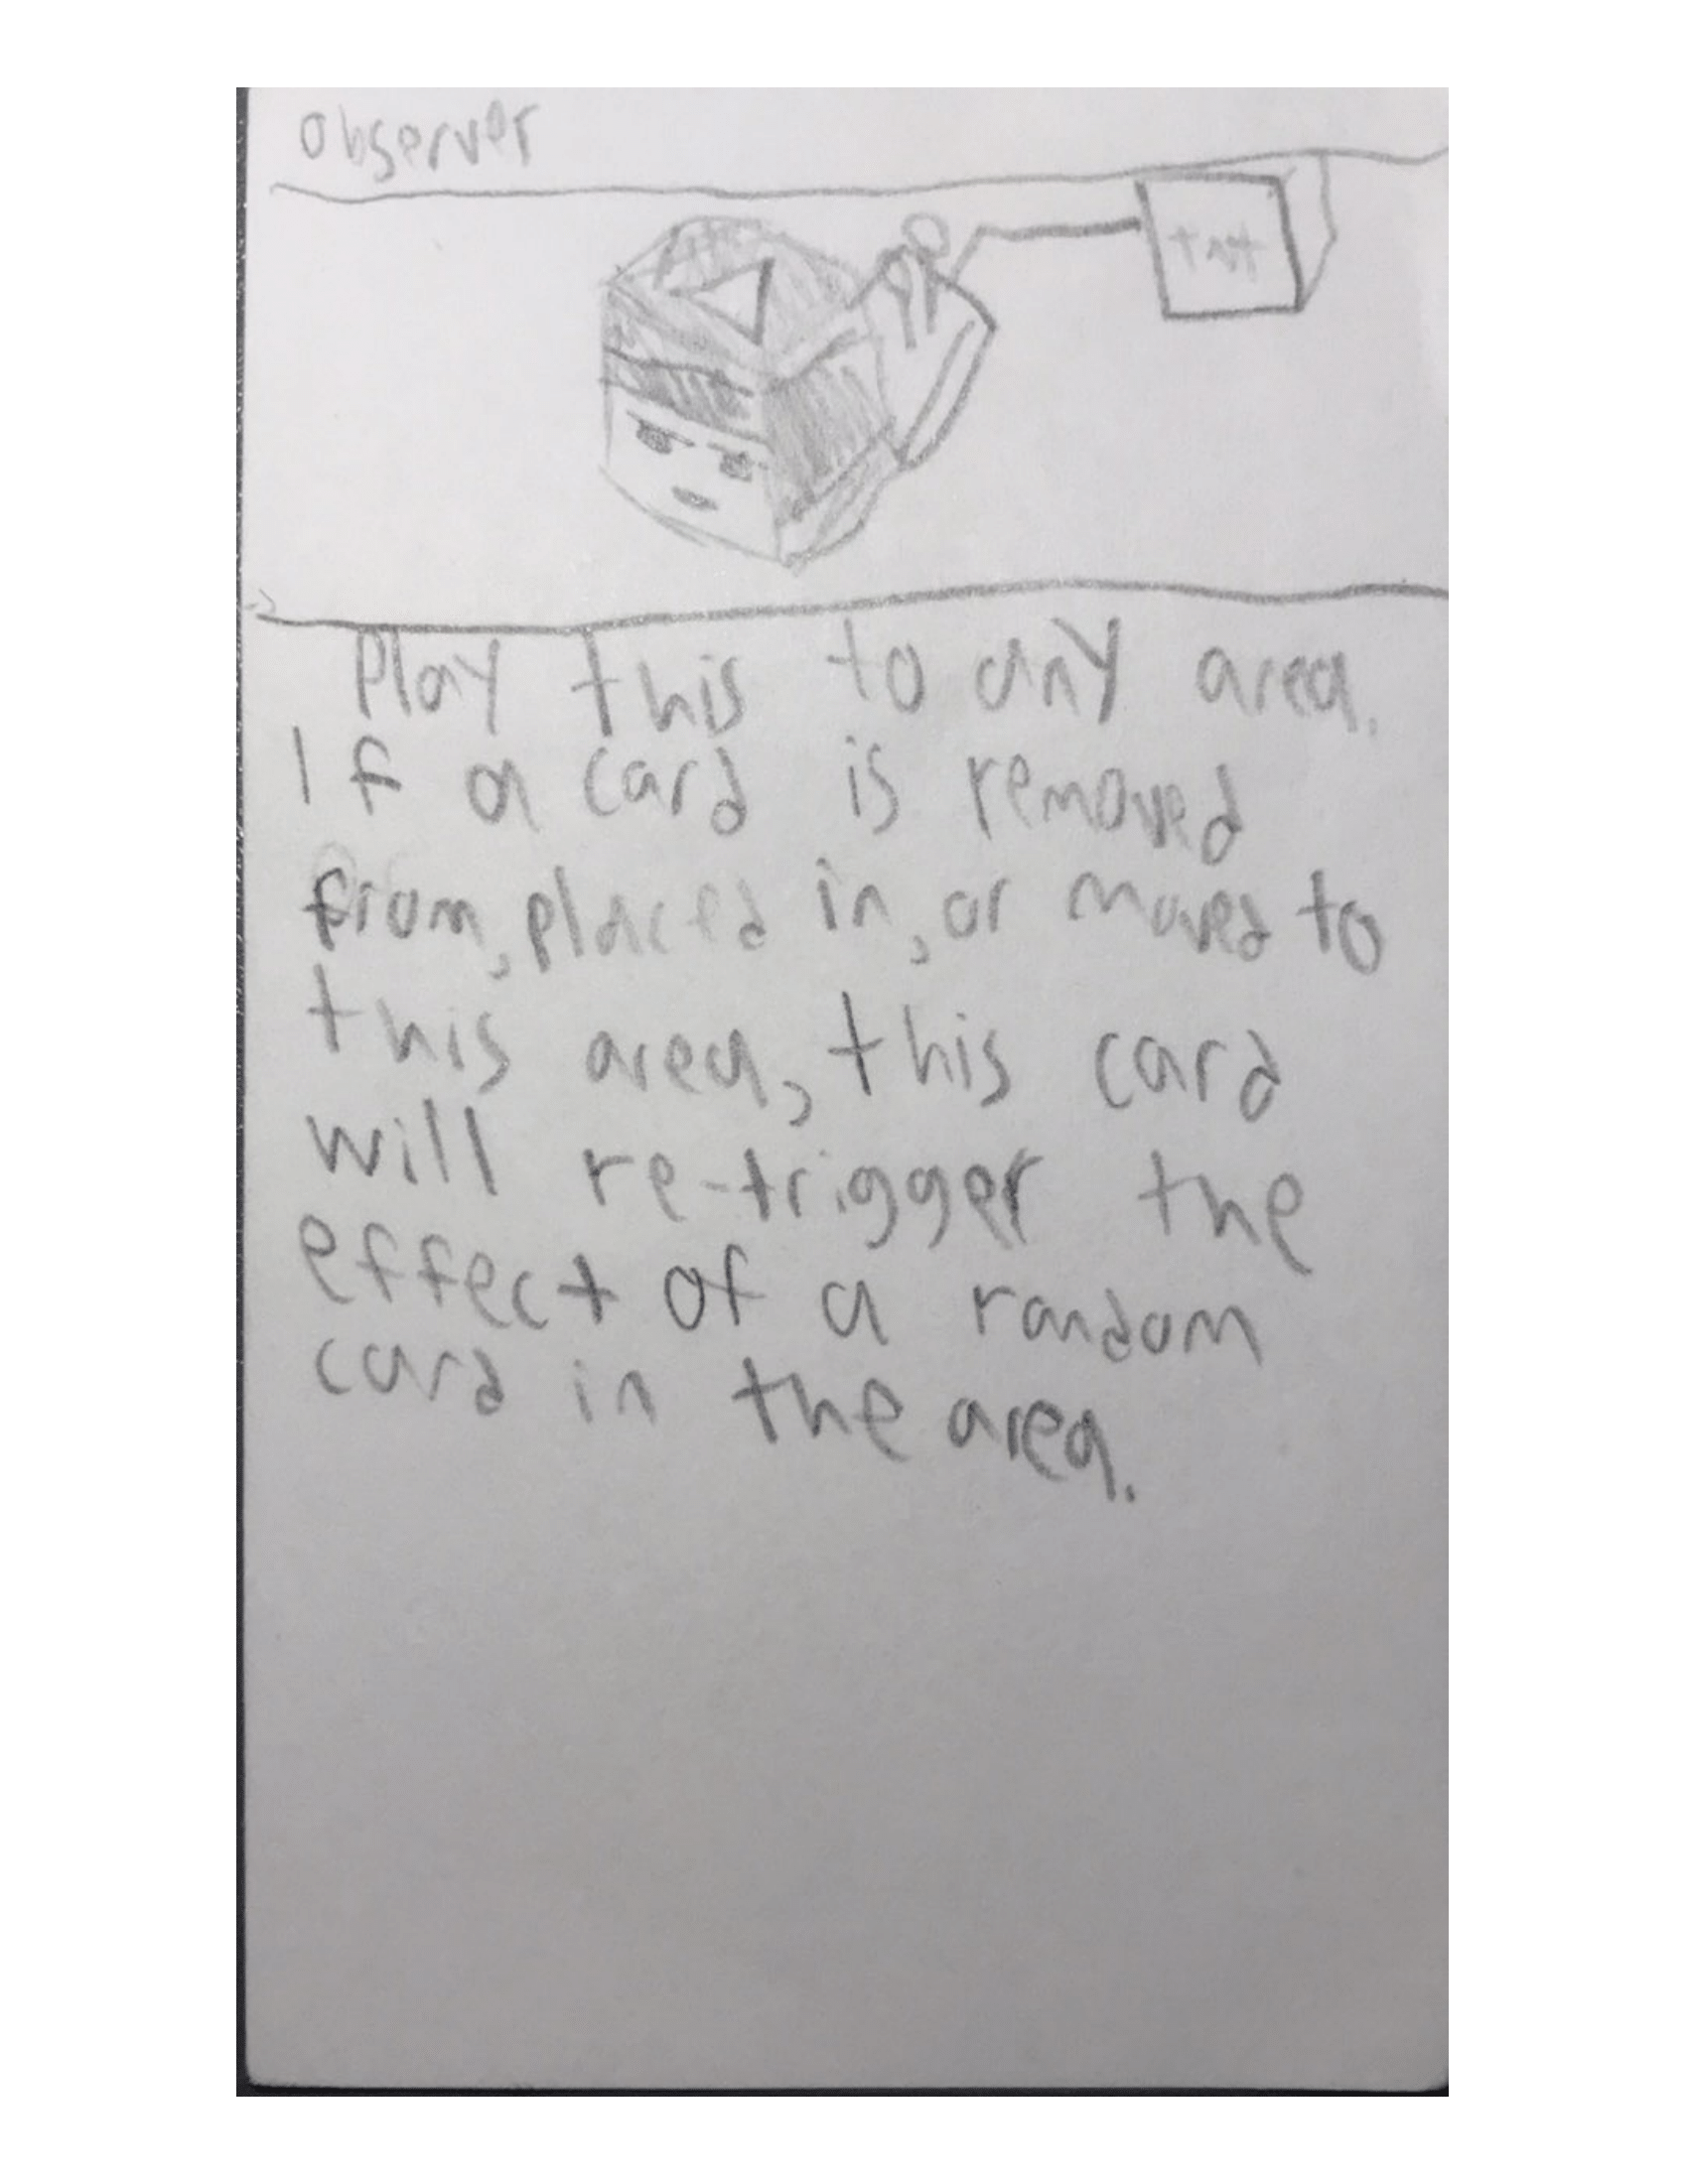 observer
tnt
Play this to any area.
If a card is removed
from, placed in, or moved to
this area, this card
will re-trigger the
effect of a random
card in the area.